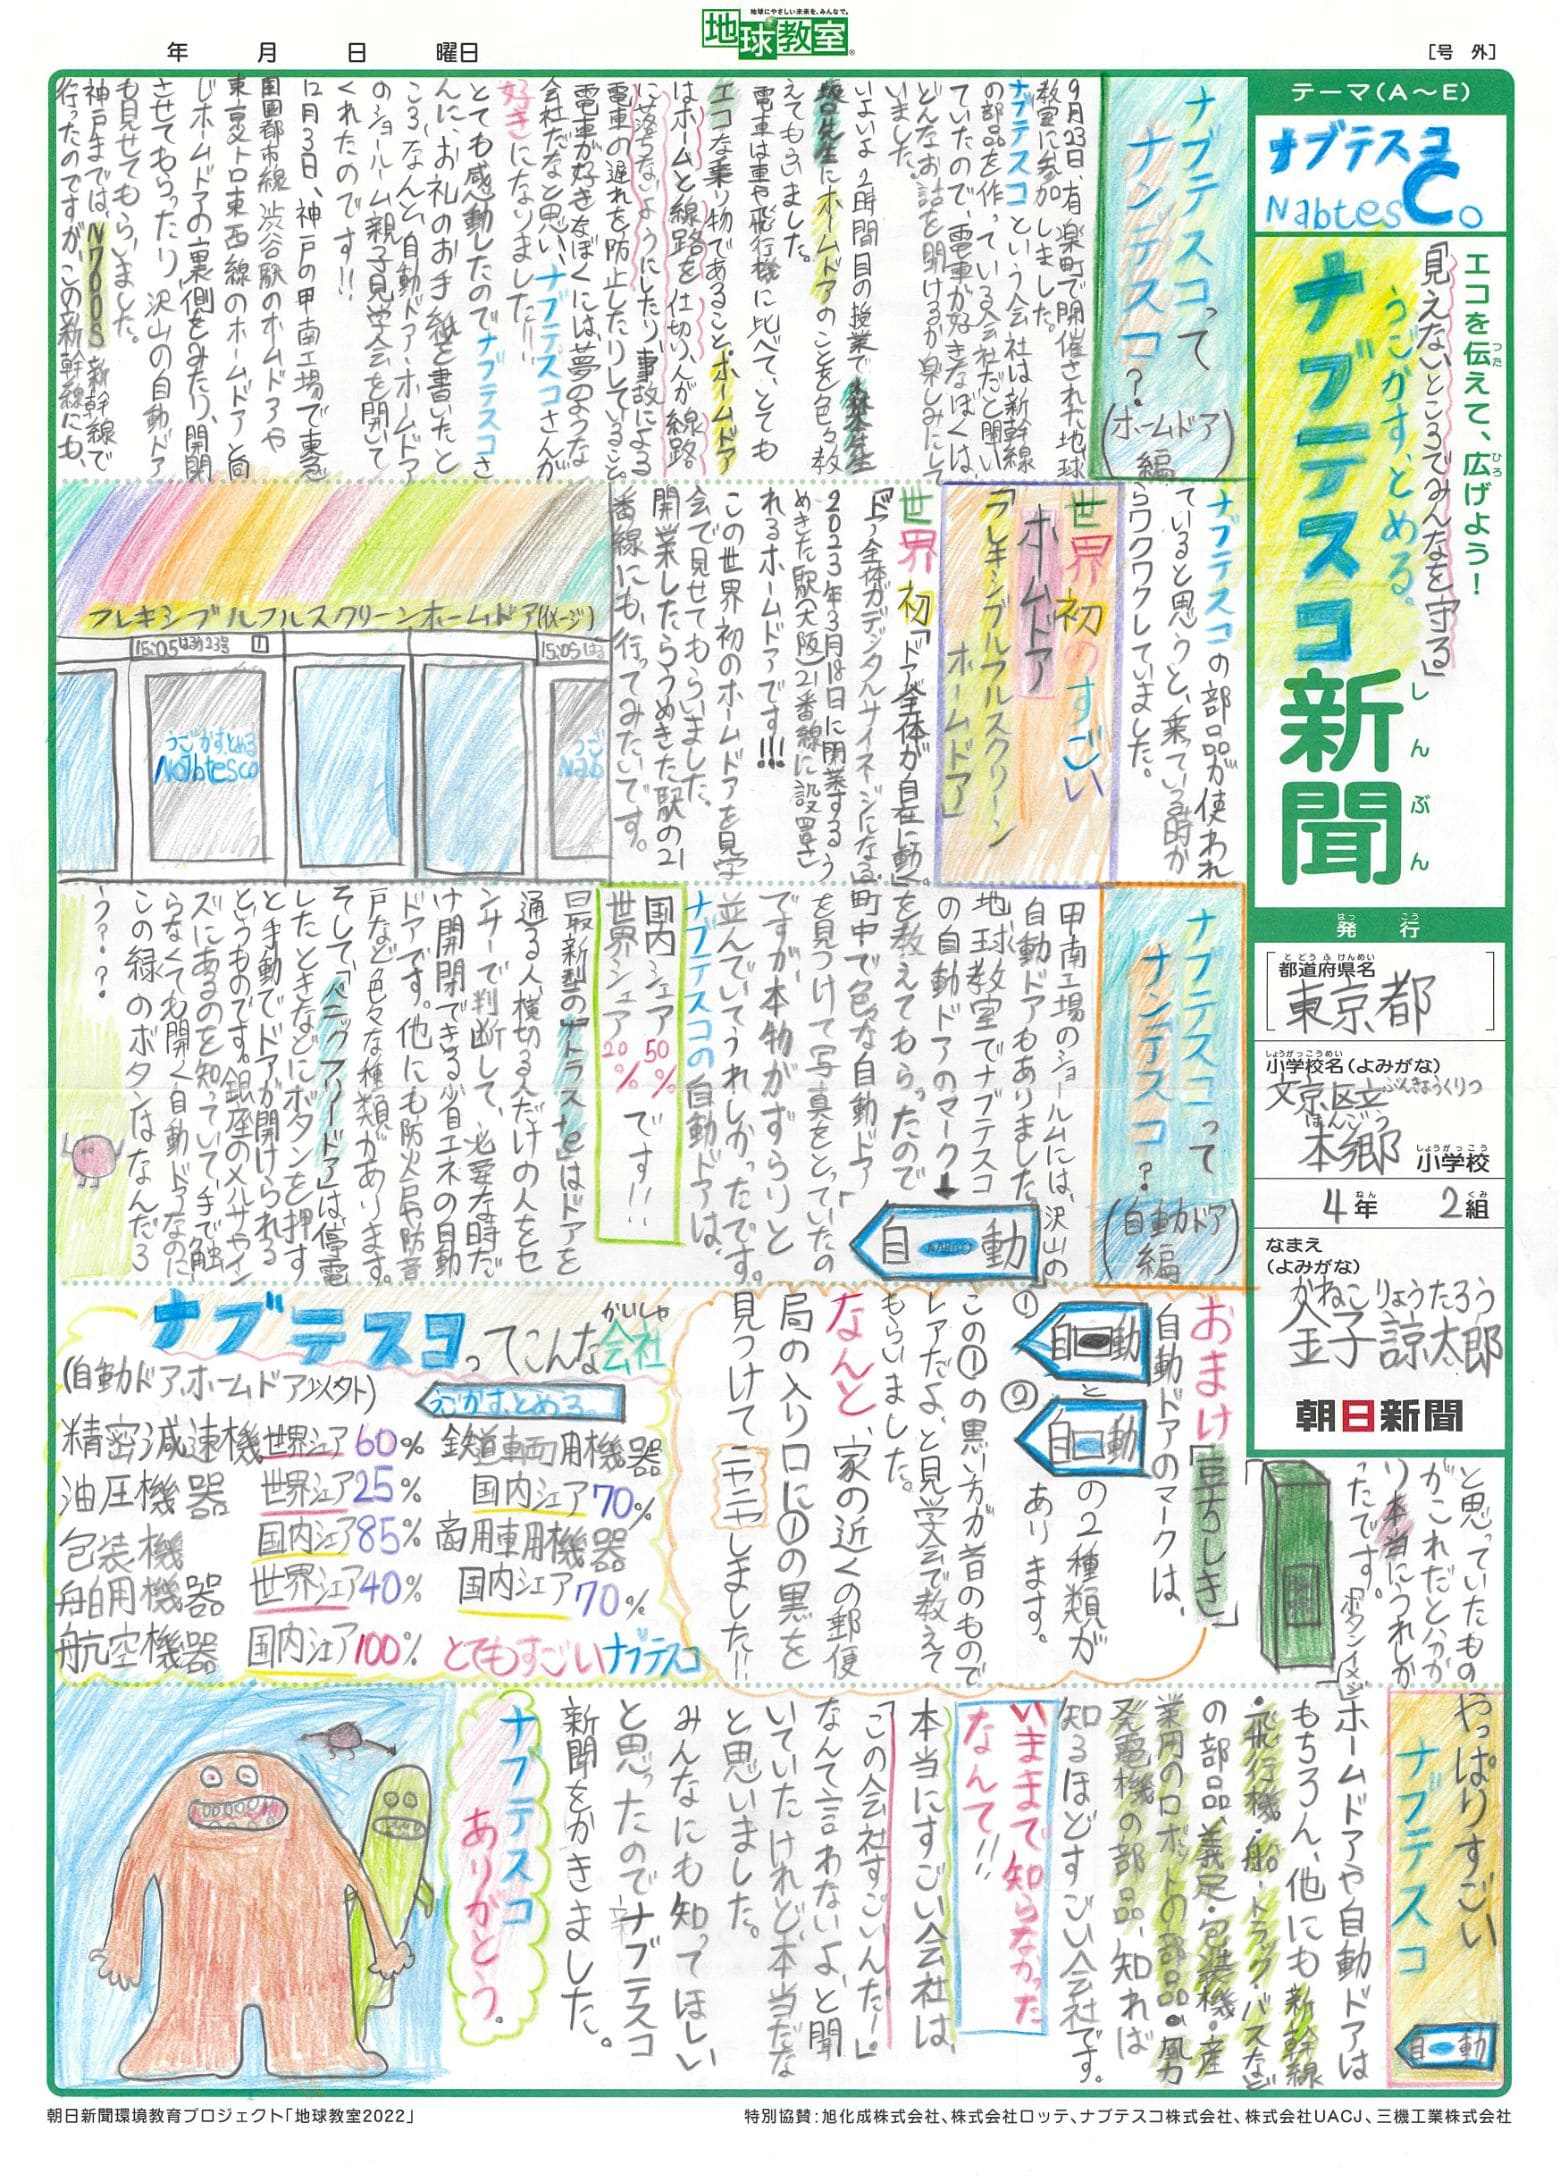 地球にやさしい未来を、みんなで。
地球教室
年 月 日 曜日
[号 外]
テーマ(A〜E)
ナブテスコ
Nabtesco
エコを伝えて、広げよう!
つた
ひろ
「見えないところでみんなを守る」
うごかす、とめる。
ナブテスコ
新聞
しんぶん
発行
はっこう
都道府県名
とどうふけんめい
東京都
小学校名(よみがな)
しょうがっこうめい
文京区立
ぶんきょうくりつ
ほんごう
本郷 小学校
しょうがっこう
4年 2組
ねん くみ
なまえ
(よみがな)
かねこ りょうたろう
金子 諒太郎
朝日新聞
ナブテスコって
ナンデスコ?
(ホームドア編)
9月23日、有楽町で開催された地球
教室に参加しました。
ナブテスコという会社は新幹線
の部品を作っている会社だと聞い
ていたので、電車が好きなぼくは、
どんなお話を聞けるか楽しみにして
いました。
いよいよ2時間目の授業で
坂口先生にホームドアのことを色々教
えてもらいました。
電車は車や飛行機に比べて、とても
エコな乗り物であること、ホームドア
はホームと線路を仕切り、人が線路
に落ちないようにしたり、事故による
電車の遅れを防止したりしていること。
電車が好きなぼくには夢のような
会社だなと思い、ナブテスコさんが
好きになりました!!
とても感動したのでナブテスコさ
んに、お礼のお手紙を書いたと
ころ、なんと、自動ドア・ホームドア
のショールーム親子見学会を開いて
くれたのです!!
12月3日、神戸の甲南工場で東急
田園都市線渋谷駅のホームドアや
東京メトロ東西線のホームドアと同
じホームドアの裏側をみたり、開閉
させてもらったり、沢山の自動ドア
も見せてもらいました。
神戸までは、N700S新幹線で
行ったのですが、この新幹線にも、
ナブテスコの部品が使われ
ていると思うと、乗っている時か
らワクワクしていました。
世界初のすごい
ホームドア
「フレキシブルフルスクリーン
ホームドア」
世界初「ドア全体が自在に動く」
「ドア全体がデジタルサイネージになる」
2023年3月18日に開業するう
めきた駅(大阪)21番線に設置さ
れるホームドアです!!!
この世界初のホームドアを見学
会で見せてもらいました。
開業したらうめきた駅の21
番線にも、行ってみたいです。
フレキシブルフルスクリーンホームドア(イメージ)
15:05はるか23号 1
15:05はる
うごかす、とめる
Nabtesco
うご
Nab
ナブテスコって
ナンデスコ?
(自動ドア編)
甲南工場のショールームには、沢山の
自動ドアもありました。
地球教室でナブテスコ
の自動ドアのマーク→
自 NABCO 動
を教えてもらったので
町中で色々な自動ドア
を見つけて写真をとっていたの
ですが、本物がずらりと
並んでいてうれしかったです。
ナブテスコの自動ドアは、
国内シェア50%
世界シェア20%です!!
最新型の「ナトラスe」はドアを
通る人、横切る人だけの人をセ
ンサーで判断して、必要な時だ
け開閉できる省エネの自動
ドアです。他にも防火戸や防音
戸など色々な種類があります。
そして、「パニックフリードア」は停電
したときなどにボタンを押す
と手動でドアが開けられる
というものです。銀座のメルサやイン
ズにあるのを知っていて、手で触
らなくても開く自動ドアなのに
この緑のボタンはなんだろ
う???
と思っていたもの
がこれだと分か
り本当にうれしか
ったです。
(ボタンイメージ)
おまけ「豆ちしき」
自動ドアのマークは、
①
自動
と
②
自動
の2種類が
あります。
この①の黒い方が昔のもので
レアだよ、と見学会で教えて
もらいました。
なんと、家の近くの郵便
局の入り口に①の黒を
見つけてニヤニヤしました!!
ナブテスコってこんな会社
かいしゃ
(自動ドア、ホームドア以外)
うごかす、とめる。
精密減速機 世界シェア60%
油圧機器 世界シェア25%
包装機 国内シェア85%
舶用機器 世界シェア40%
航空機器 国内シェア100%
鉄道車両用機器
国内シェア70%
商用車用機器
国内シェア70%
とてもすごいナブテスコ
やっぱりすごい
ナブテスコ
自動
ホームドアや自動ドアは
もちろん、他にも新幹線
・飛行機・船・トラック・バスなど
の部品、義足・包装機・産
業用のロボットの部品・風力
発電機の部品、知れば
知るほどすごい会社です。
いままで知らなかった
なんて!!
本当にすごい会社は、
「この会社すごいんだー」
なんて言わないよ、と聞
いていたけれど、本当だな
と思いました。
みんなにも知ってほしい
と思ったのでナブテスコ
新聞をかきました。
ナブテスコ
ありがとう。
朝日新聞環境教育プロジェクト「地球教室2022」
特別協賛:旭化成株式会社、株式会社ロッテ、ナブテスコ株式会社、株式会社UACJ、三機工業株式会社